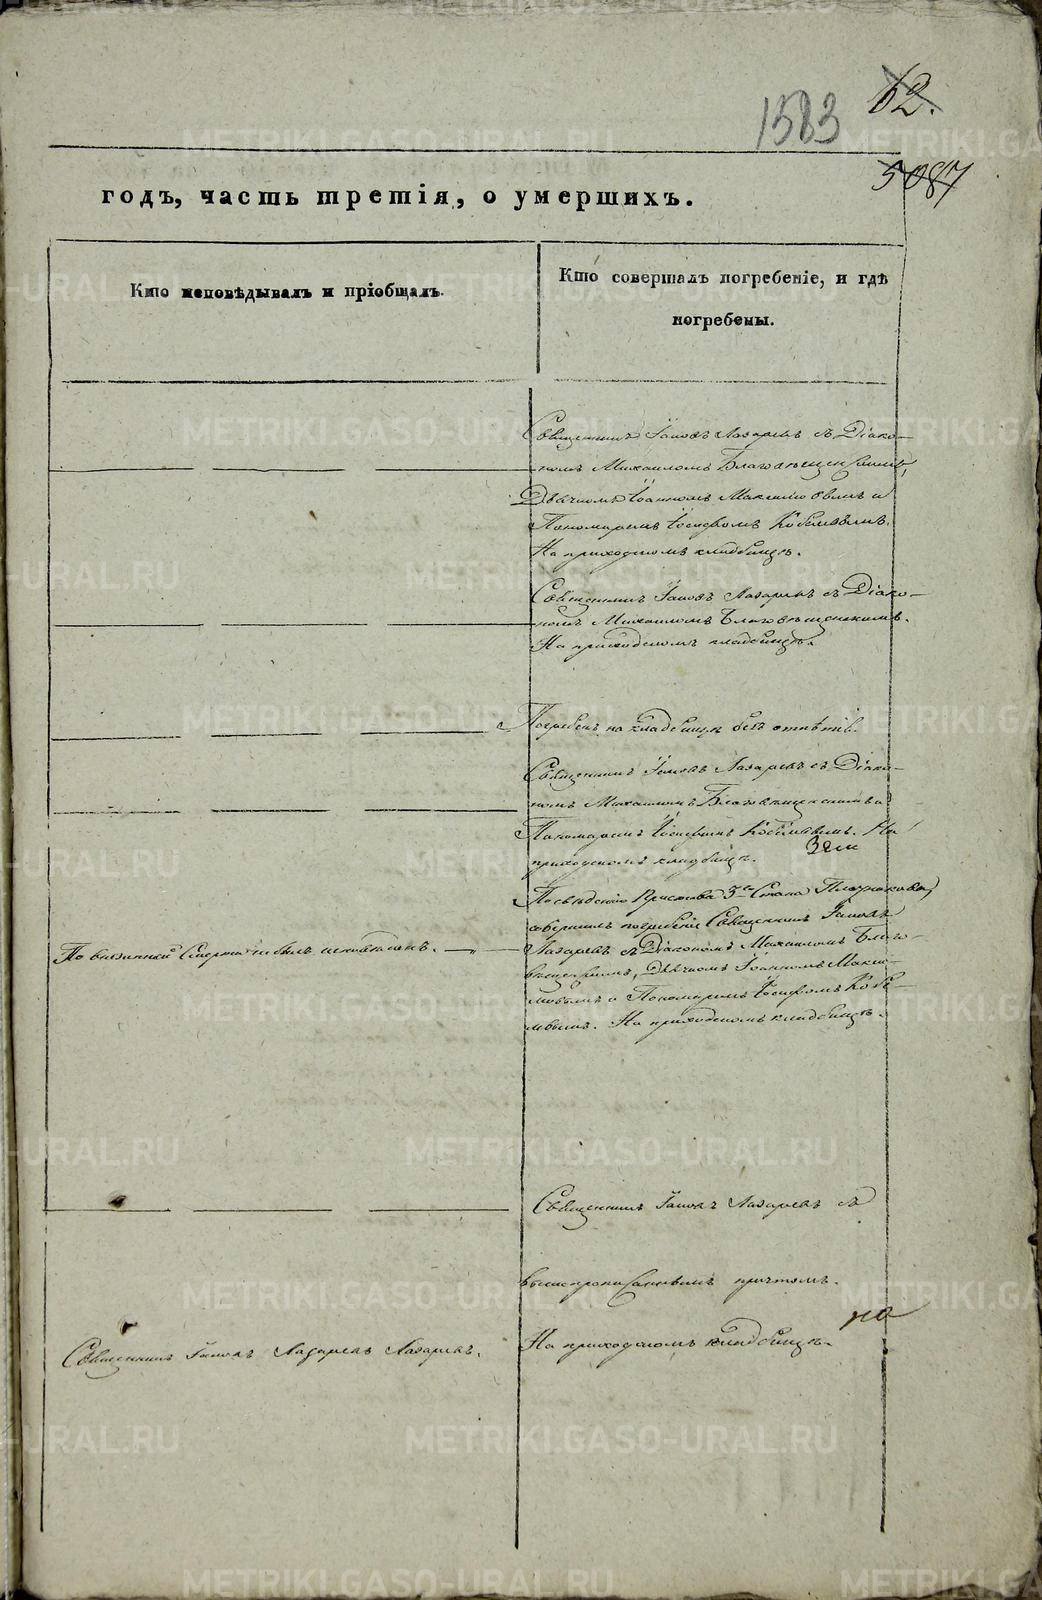 1583
62.
5087
годъ, часть третія, о умершихъ.
Кто исповѣдывалъ и пріобщалъ.
Кто совершалъ погребеніе, и гдѣ
погребены.
Священникъ Іаковъ Лазаревъ съ Діако-
номъ Михаиломъ Благовѣщенскимъ,
Дьячкомъ Іоанномъ Максимовымъ и
Пономаремъ Іосифомъ Кобелевымъ.
На приходскомъ кладбищѣ.
Священникъ Іаковъ Лазаревъ съ Діако-
номъ Михаиломъ Благовѣщенскимъ.
На приходскомъ кладбищѣ.
Погребенъ на кладбищѣ безъ отпѣтія.
Священникъ Іаковъ Лазаревъ съ Діако-
номъ Михаиломъ Благовѣщенскимъ и
Пономаремъ Іосифомъ Кобелевымъ. На
приходскомъ кладбищѣ.
Пристава 3го Стана Плотникова,
совершилъ погребеніе Священникъ Іаковъ
По внезапной Смерти не былъ исповѣданъ.
Лазаревъ съ Діакономъ Михаиломъ Благо-
вѣщенскимъ, Дьячкомъ Іоанномъ Макси-
мовымъ и Пономаремъ Іосифомъ Кобе-
левымъ. На приходскомъ кладбищѣ.
Священникъ Іаковъ Лазаревъ съ
вышепрописаннымъ причтомъ.
Священникъ Іаковъ Лазаревъ Лазаревъ.
На приходскомъ кладбищѣ.
METRIKI.GASO-URAL.RU